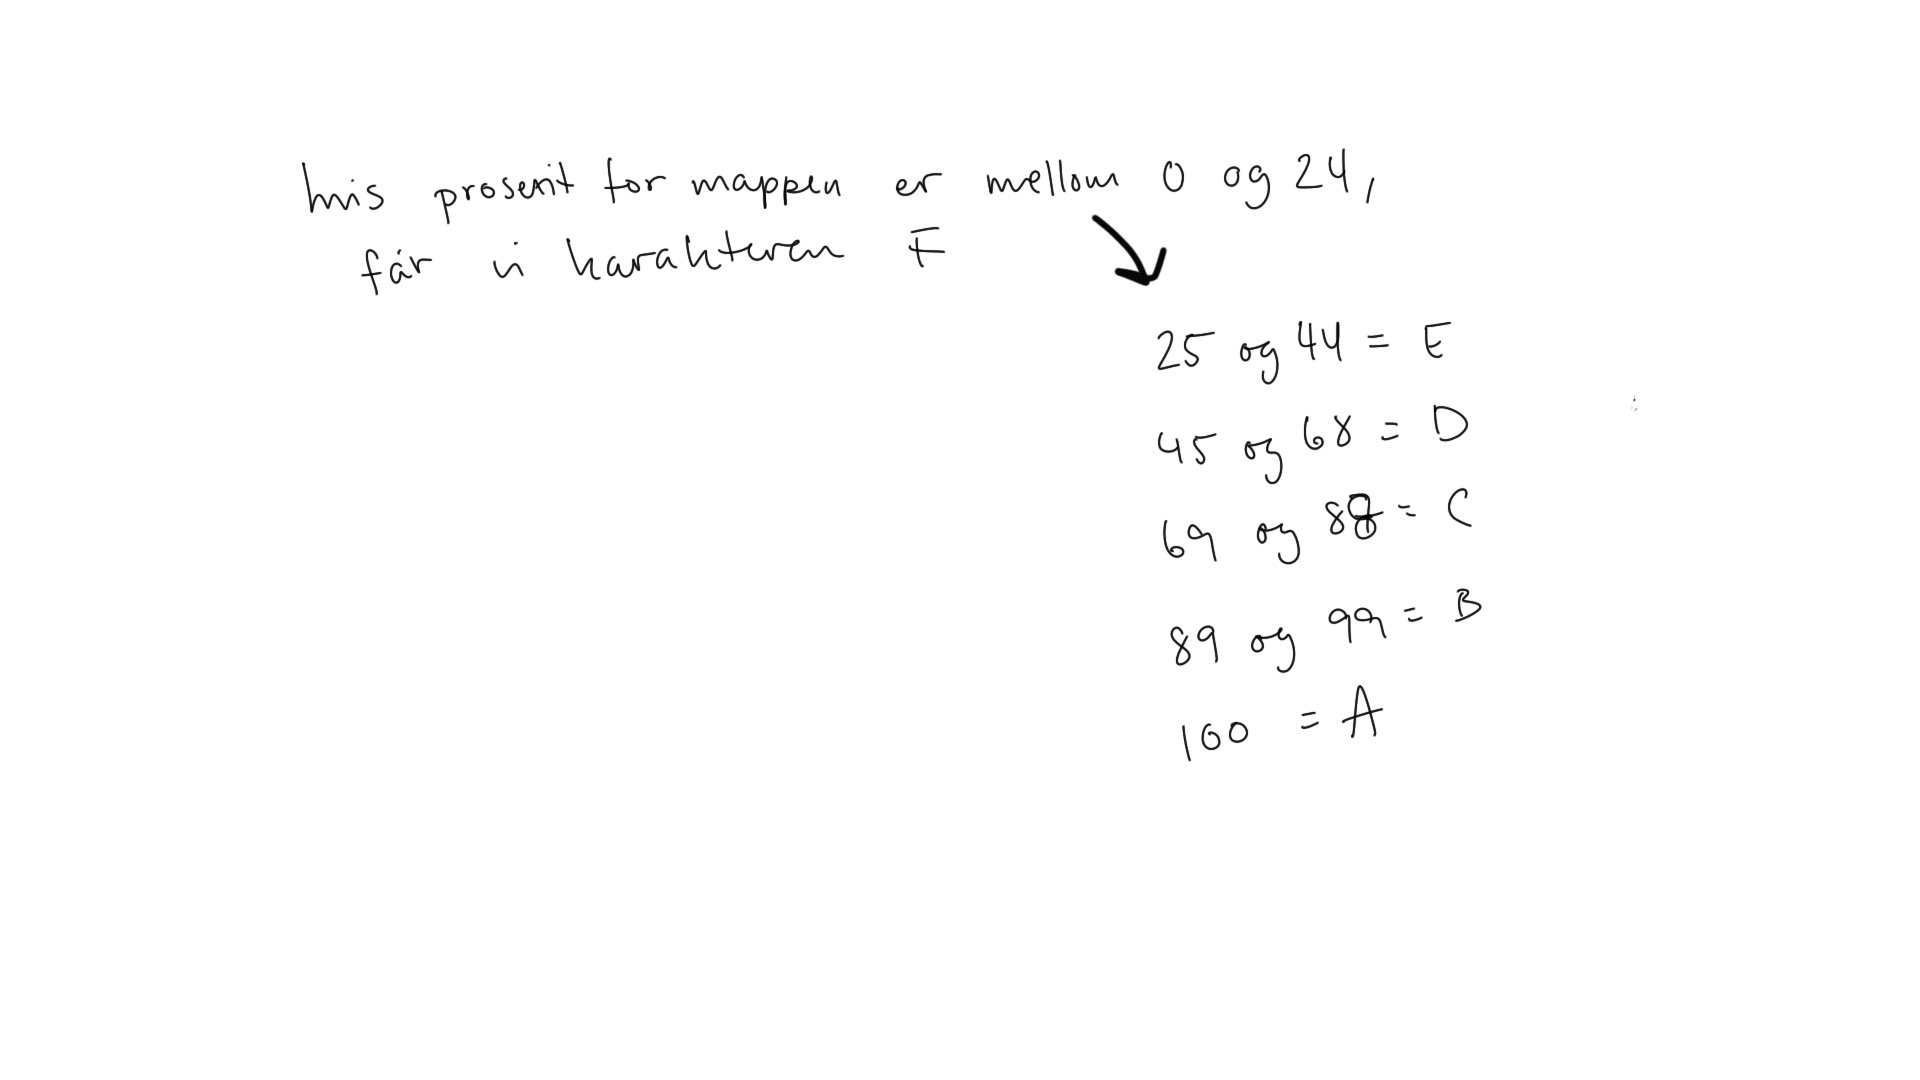 hvis prosent for mappen er mellom 0 og 24,
får vi karakteren F
25 og 44 = E
45 og 68 = D
69 og 88 = C
89 og 99 = B
100 = A